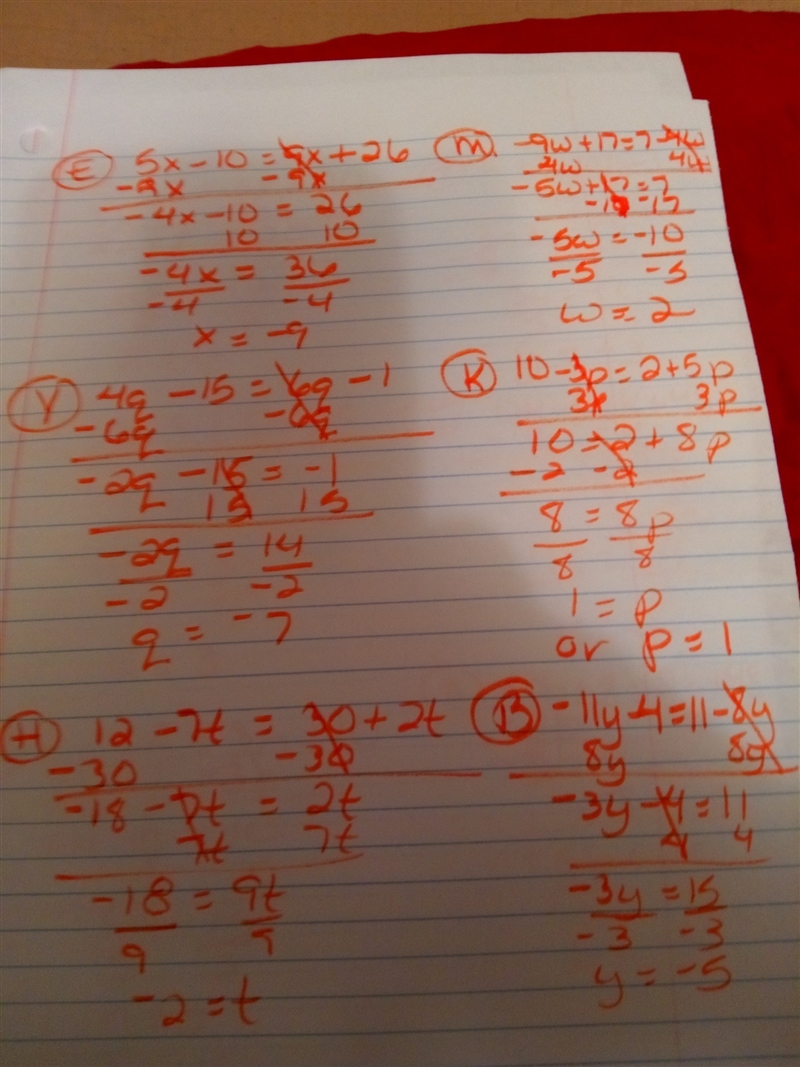 E 5x - 10 = 9x + 26
-9x -9x
-4x - 10 = 26
10 10
-4x = 36
-4 -4
x = -9
M -9w + 17 = 7 - 4w
4w 4w
-5w + 17 = 7
-17 -17
-5w = -10
-5 -5
w = 2
Y 4q - 15 = 6q - 1
-6q -6q
-2q - 15 = -1
15 15
-2q = 14
-2 -2
q = -7
K 10 - 3p = 2 + 5p
3p 3p
10 = 2 + 8p
-2 -2
8 = 8p
8 8
1 = p
or p = 1
H 12 - 7t = 30 + 2t
-30 -30
-18 - 7t = 2t
7t 7t
-18 = 9t
9 9
-2 = t
B -11y - 4 = 11 - 8y
8y 8y
-3y - 4 = 11
4 4
-3y = 15
-3 -3
y = -5